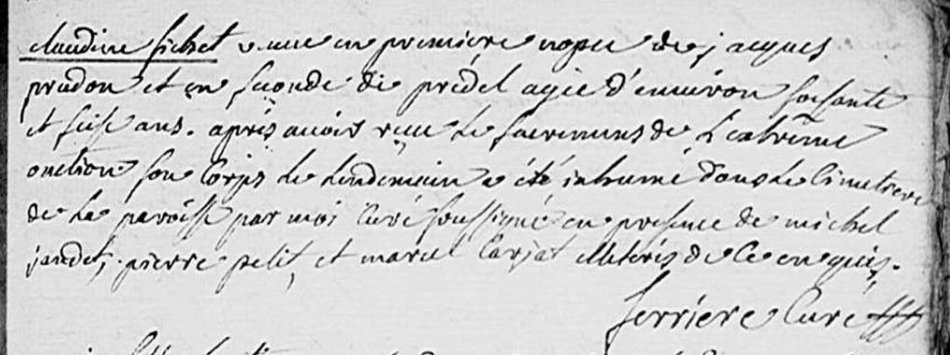 claudine fichet veuve en premiere nopce de jacques
prudon et en seconde de prédel agée d'environ soisante
et seise ans. après avoir reçu le sacremens de l'extrême
onction son corps le lendemain a été inhumé dans le cimetiere
de la paroisse par moi curé soussigné en presence de michel
jandet, pierre petit, et marcel Carjat illitérés de ce enquis.
ferriere Curé